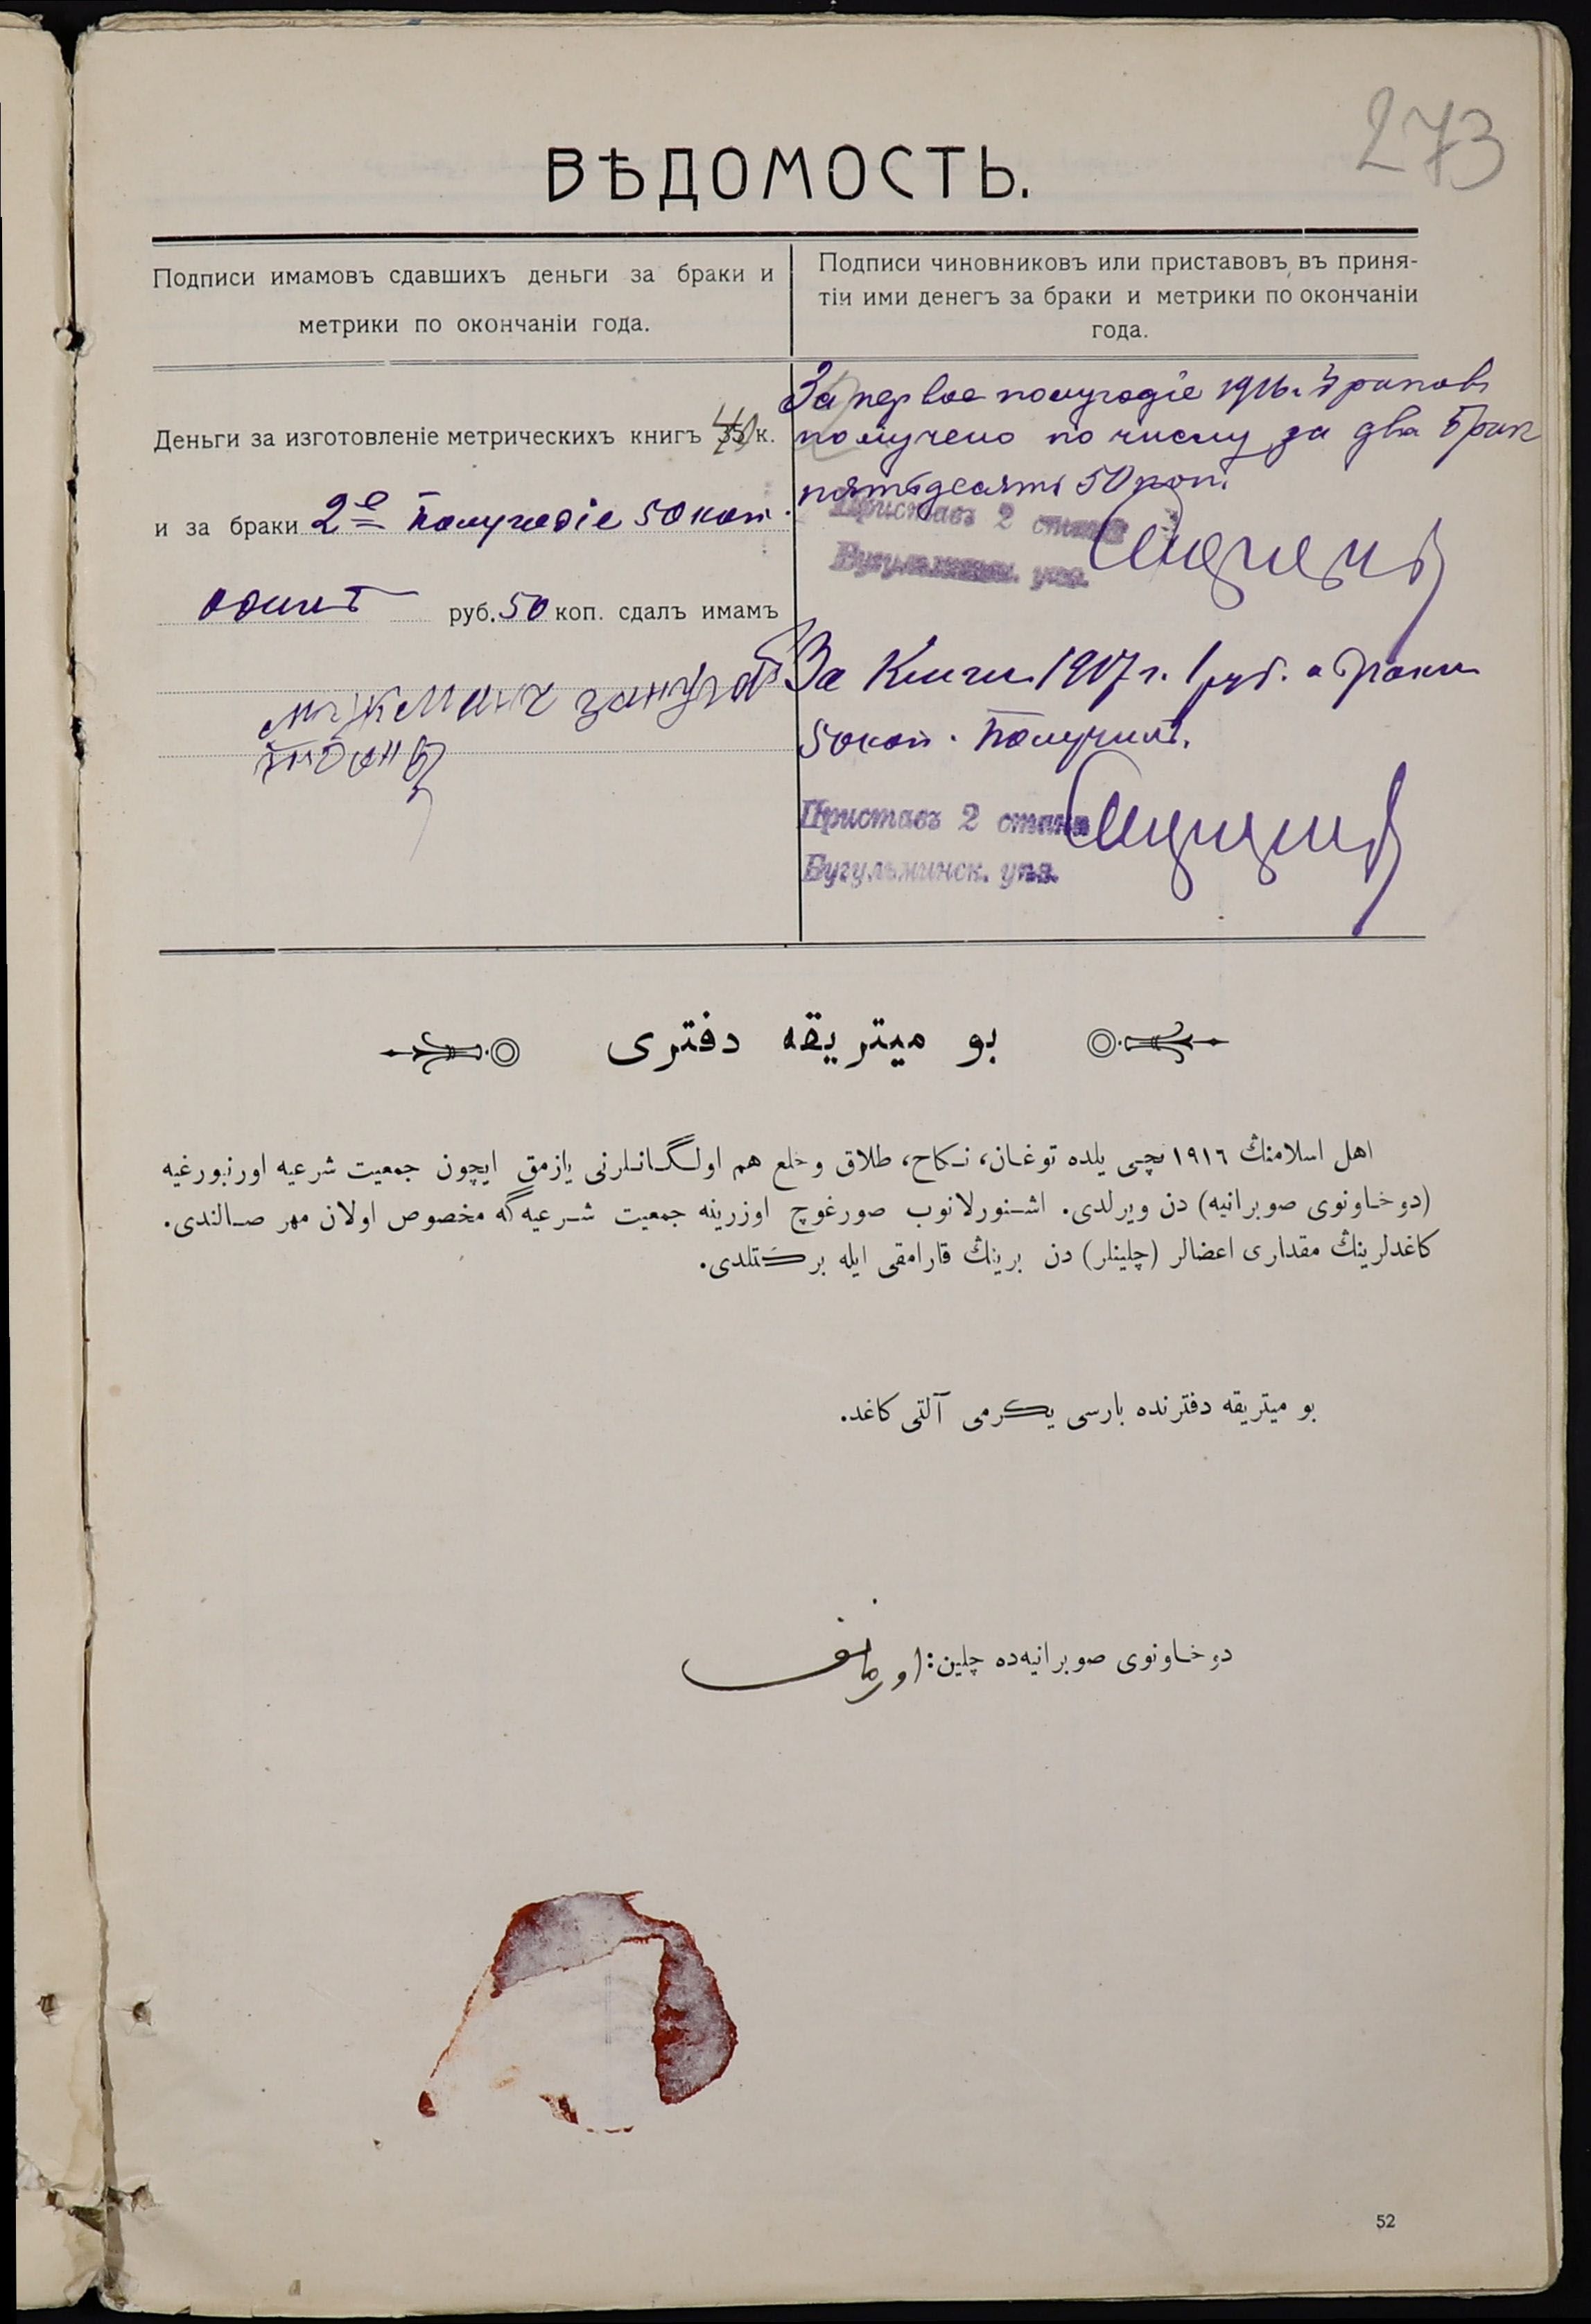 273
ВѢДОМОСТЬ.
Подписи имамовъ сдавшихъ деньги за браки и
метрики по окончаніи года.
Подписи чиновниковъ или приставовъ въ приня-
тіи ими денегъ за браки и метрики по окончаніи
года.
Деньги за изготовленіе метрическихъ книгъ к.
и за браки 2е полугодіе 50 коп.
одинъ руб. 50 коп. сдалъ имамъ
За первое полугодіе 1916 г.
получено по числу за два брак
пятьдесятъ 50 коп.
Приставъ 2 стана
Бугульминск. уѣз.
За Книги 1917 г. 1 руб. и браки
50 коп. Получилъ.
Приставъ 2 стана
Бугульминск. уѣз.
بو ميتريقه دفترى
اهل اسلامنڭ ١٩١٦ نچى يلده توغان، نكاح، طلاق وخلع هم اولگانلرنى يازمق ايچون جمعيت شرعيه اورنبورغيه
(دوخاونوى صوبرانيه) دن ويرلدى. اشنورلانوب صورغوچ اوزرينه جمعيت شرعيه‌گه مخصوص اولان مهر صالندى.
كاغدلرينڭ مقدارى اعضالر (چلينلر) دن برينڭ قارامقى ايله بركتلدى.
بو ميتريقه دفترنده بارسى يكرمى آلتى كاغد.
دوخاونوى صوبرانيه‌ده چلين:
52